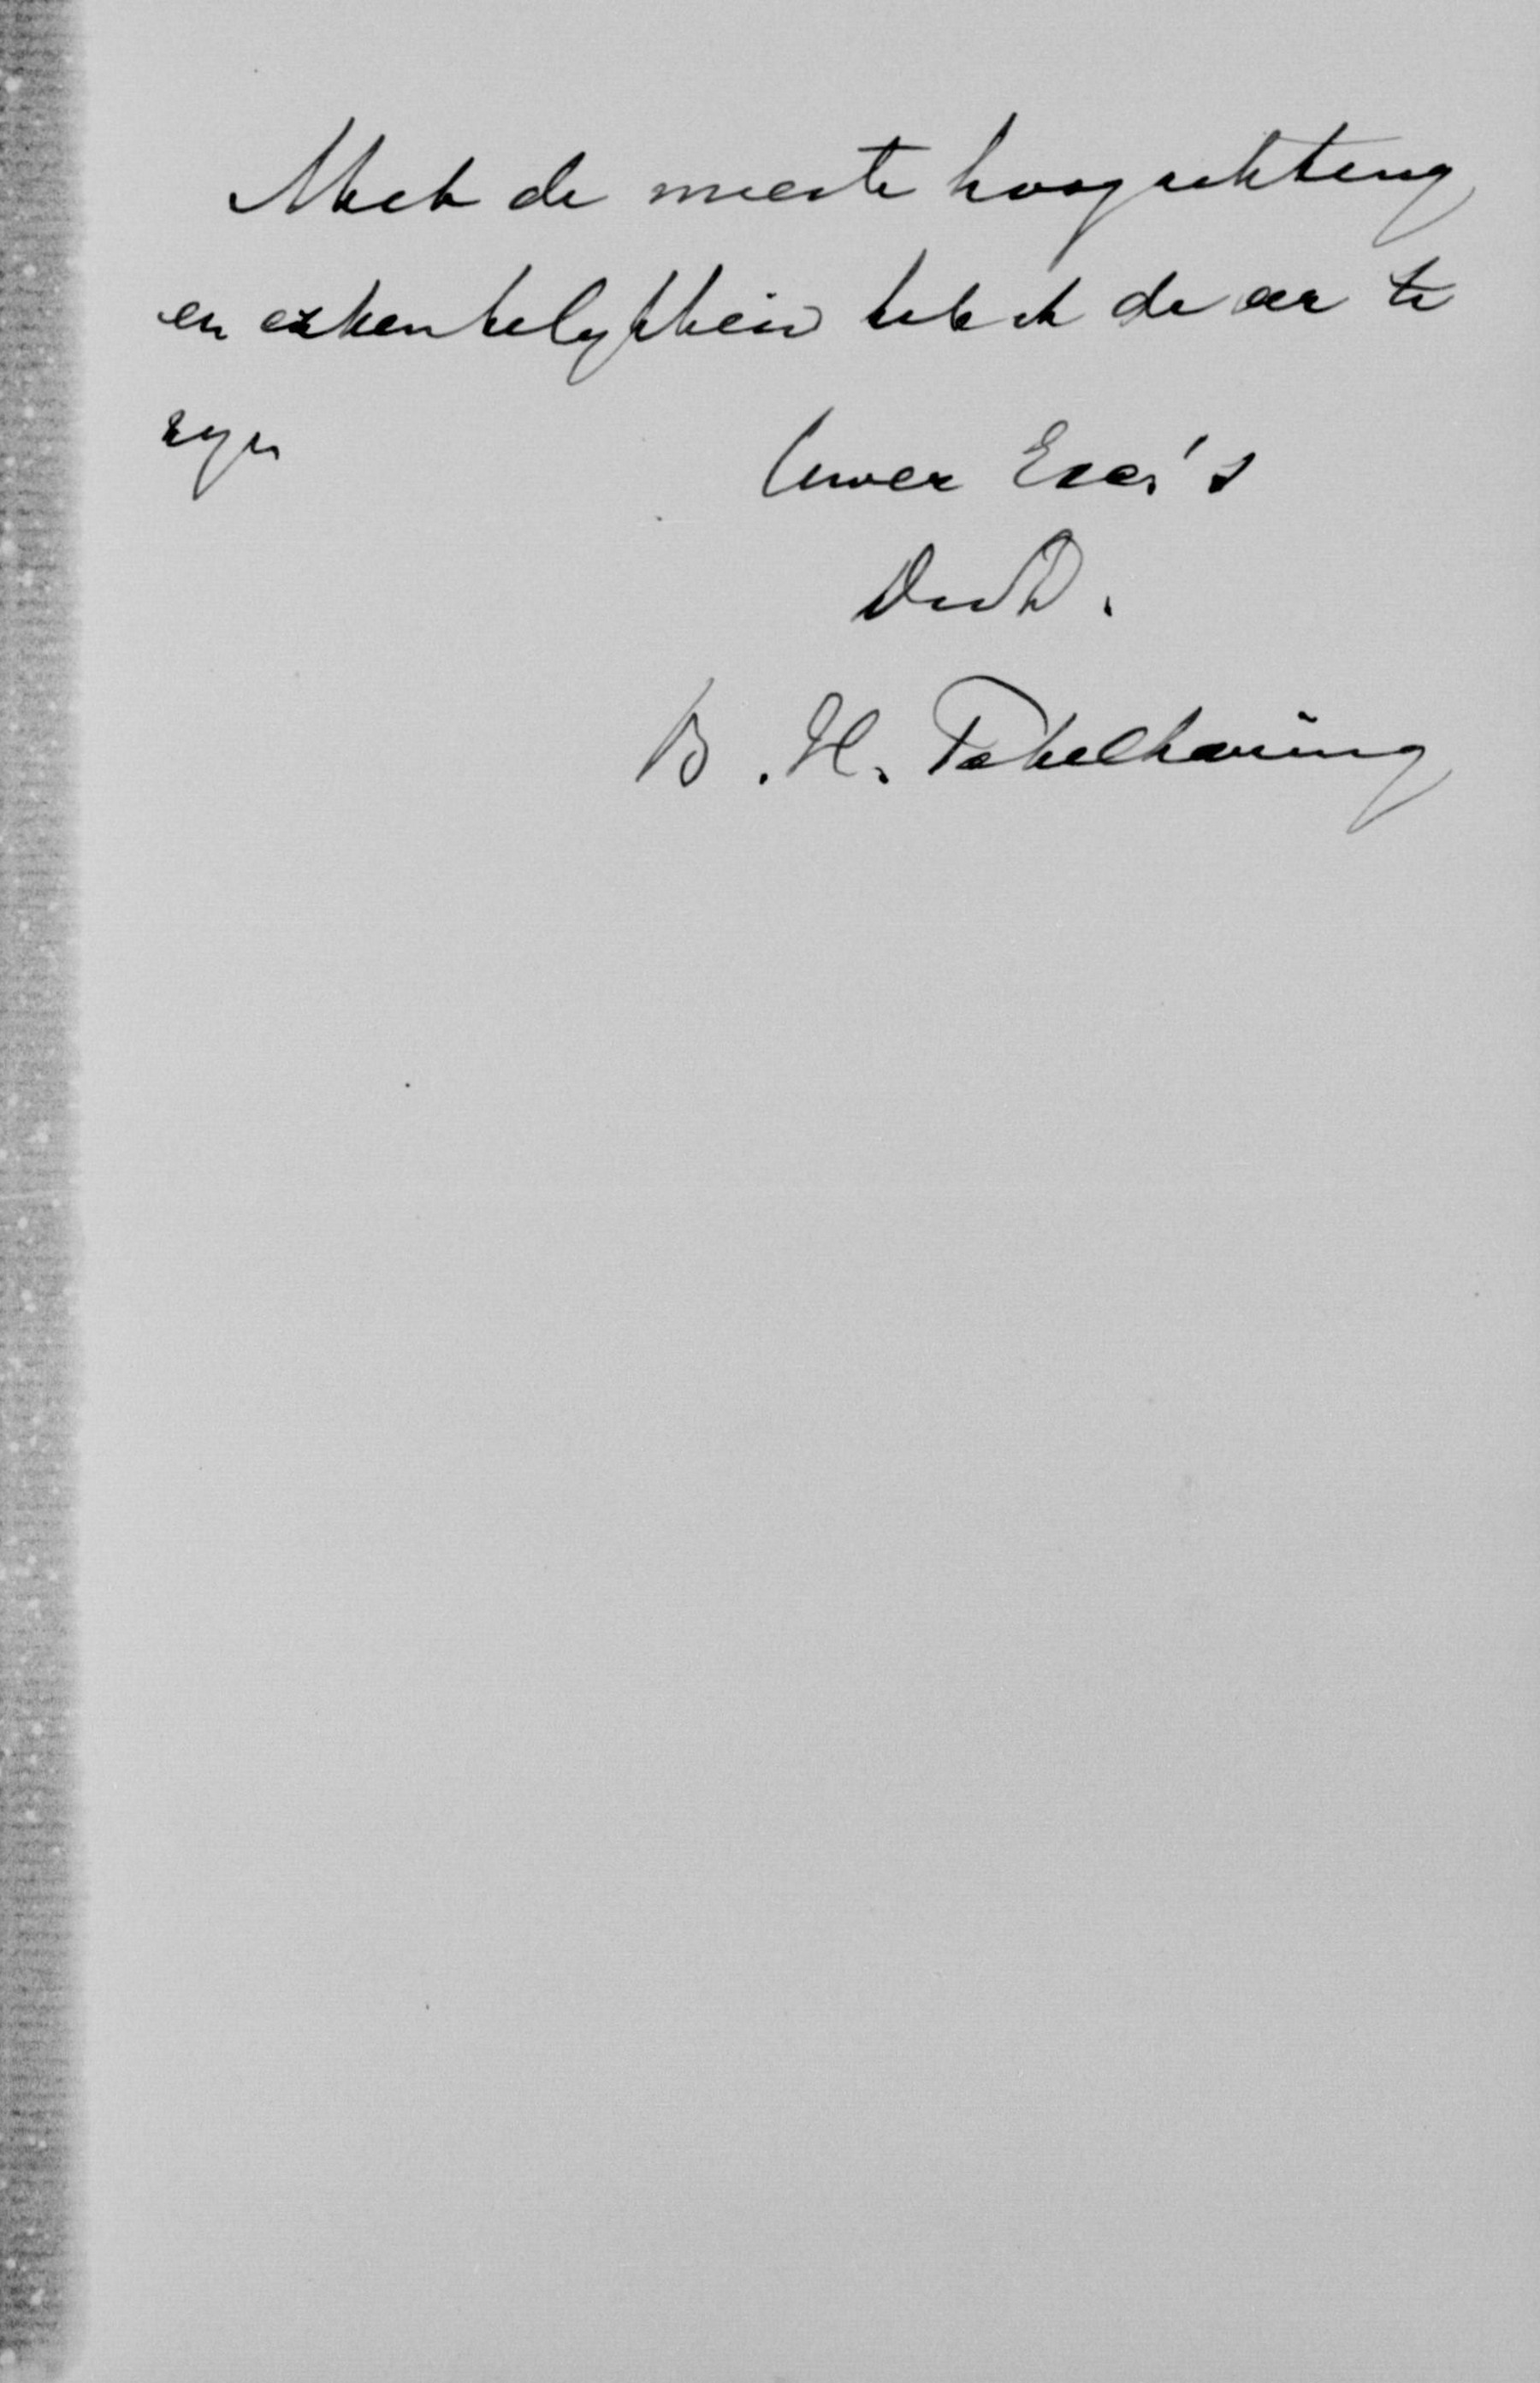 Met de meeste hoogachting
en erkentelykheid heb ik de eer te
zyn
Uwer Exc.'s
DwD.
B. H. Pekelharing